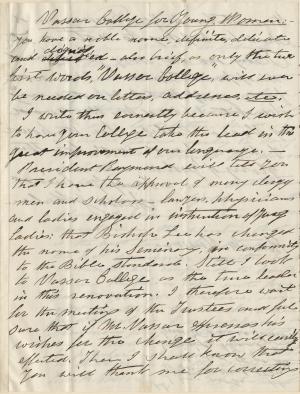 Vassar College for Young Women:—
you have a noble name, definite, delicate
and dignified — also brief, as "only the two
first words, Vassar College, will ever
be needed on letters, addresses, etc.
I write thus earnestly because I wish
to have your College take the lead in this
great improvement of our language. —
President Raymond will tell you
that I have the approval of many clergy
men and scholars — lawyers, physicians
and ladies engaged in instruction of young
ladies: that Bishop Lee has changed
the name of his Seminary, in conformity
to the Bible standard. Still I look
to Vassar College as the true leader
in this renovation. I therefore wait
for the meeting of the Trustees and feel
sure that if Mr. Vassar expresses his
wishes for the change it will easily
effected. Then I should know that
you will thank me for correcting